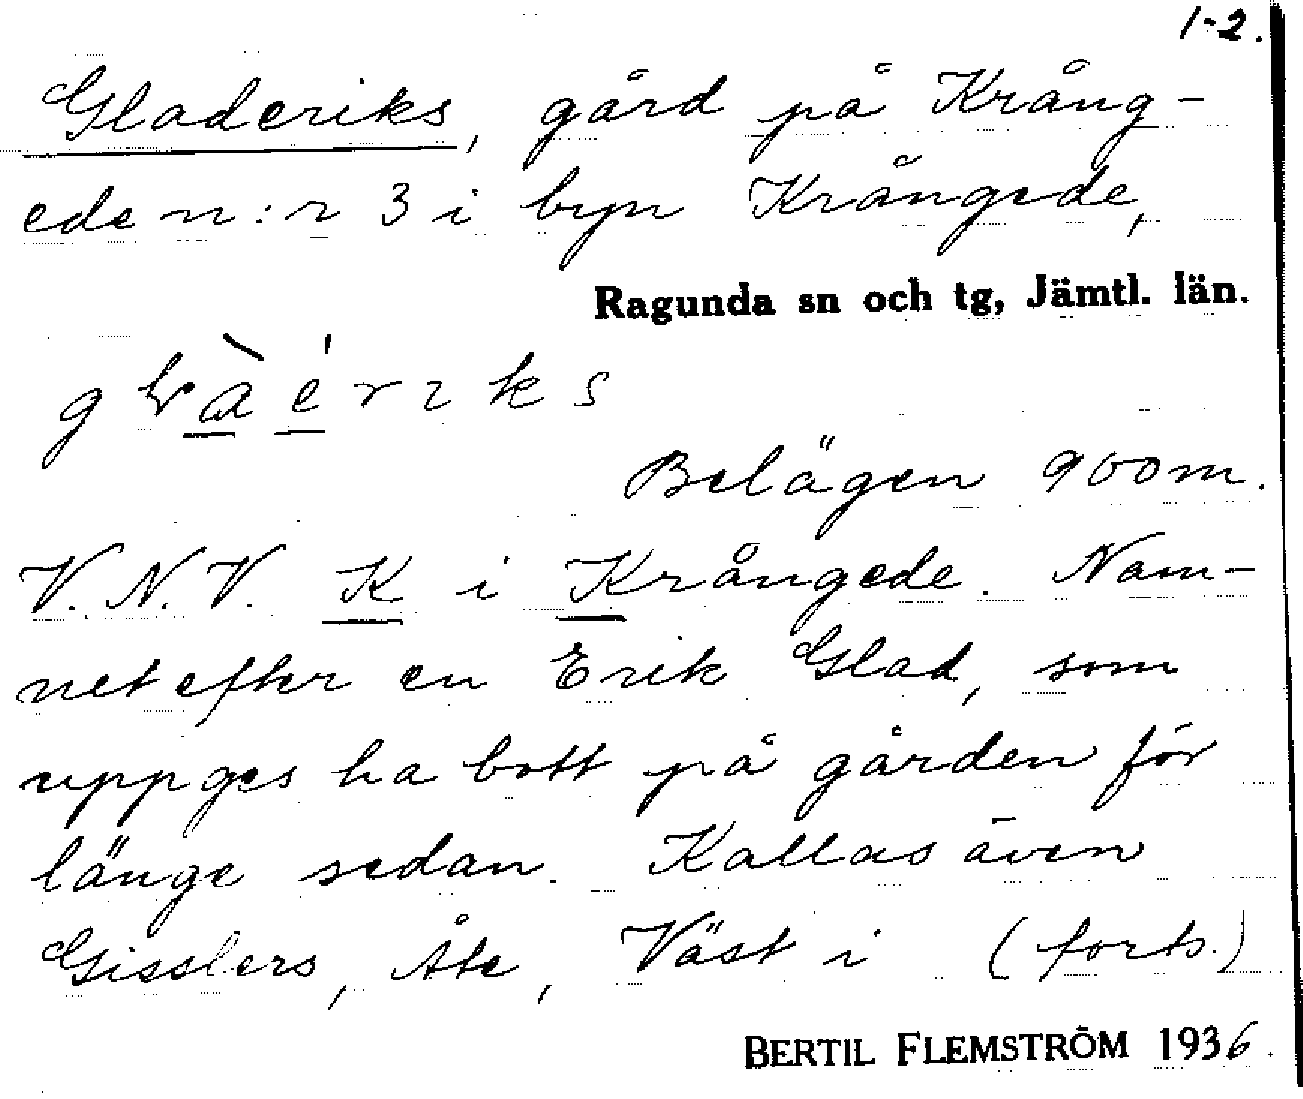 1-2.
Gladeriks, gård på Kräng-
ede n:r 3 i byn Krångede,
Ragunda sn och tg, Jämtl. län.
Belägen 900 m.
V.N.V. K i Krångede. Nam-
net efter en Erik Glad, som
uppges ha bott på gården för
länge sedan. Kallas även
Gisslers, Åte, Väst i (forts.)
BERTIL FLEMSTRÖM 1936.